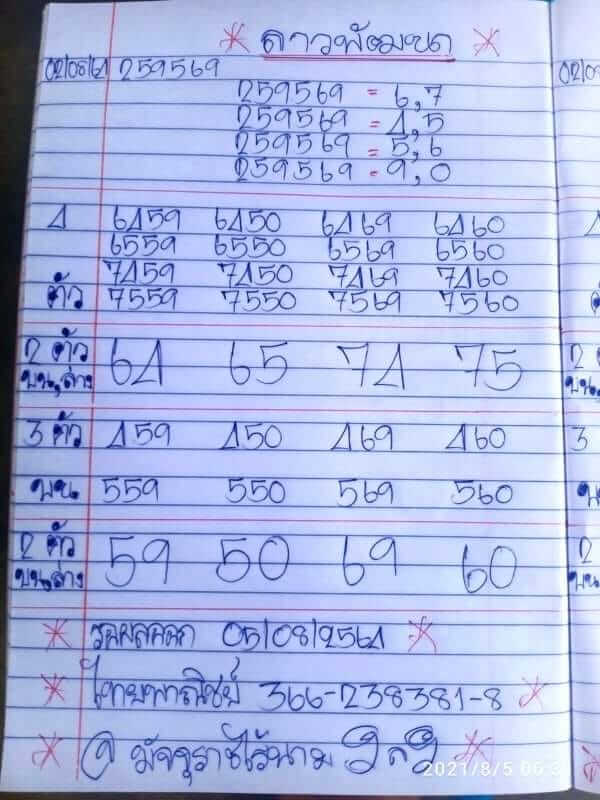 ลาวพัฒนา
02/08/64 259569
259569 = 6,7
259569 = 4,5
259569 = 5,6
259569 = 9,0
4 ตัว
6459 6450 6469 6460
6559 6550 6569 6560
7459 7450 7469 7460
7559 7550 7569 7560
2 ตัว บน,ล่าง
64 65 74 75
3 ตัว บน
459 450 469 460
559 550 569 560
2 ตัว บน,ล่าง
59 50 69 60
รอผลออก 05/08/2564
ไทยพาณิชย์ 366-238381-8
มัจจุราชไร้นาม
2021/8/5 06:3
02/0
2
3
2